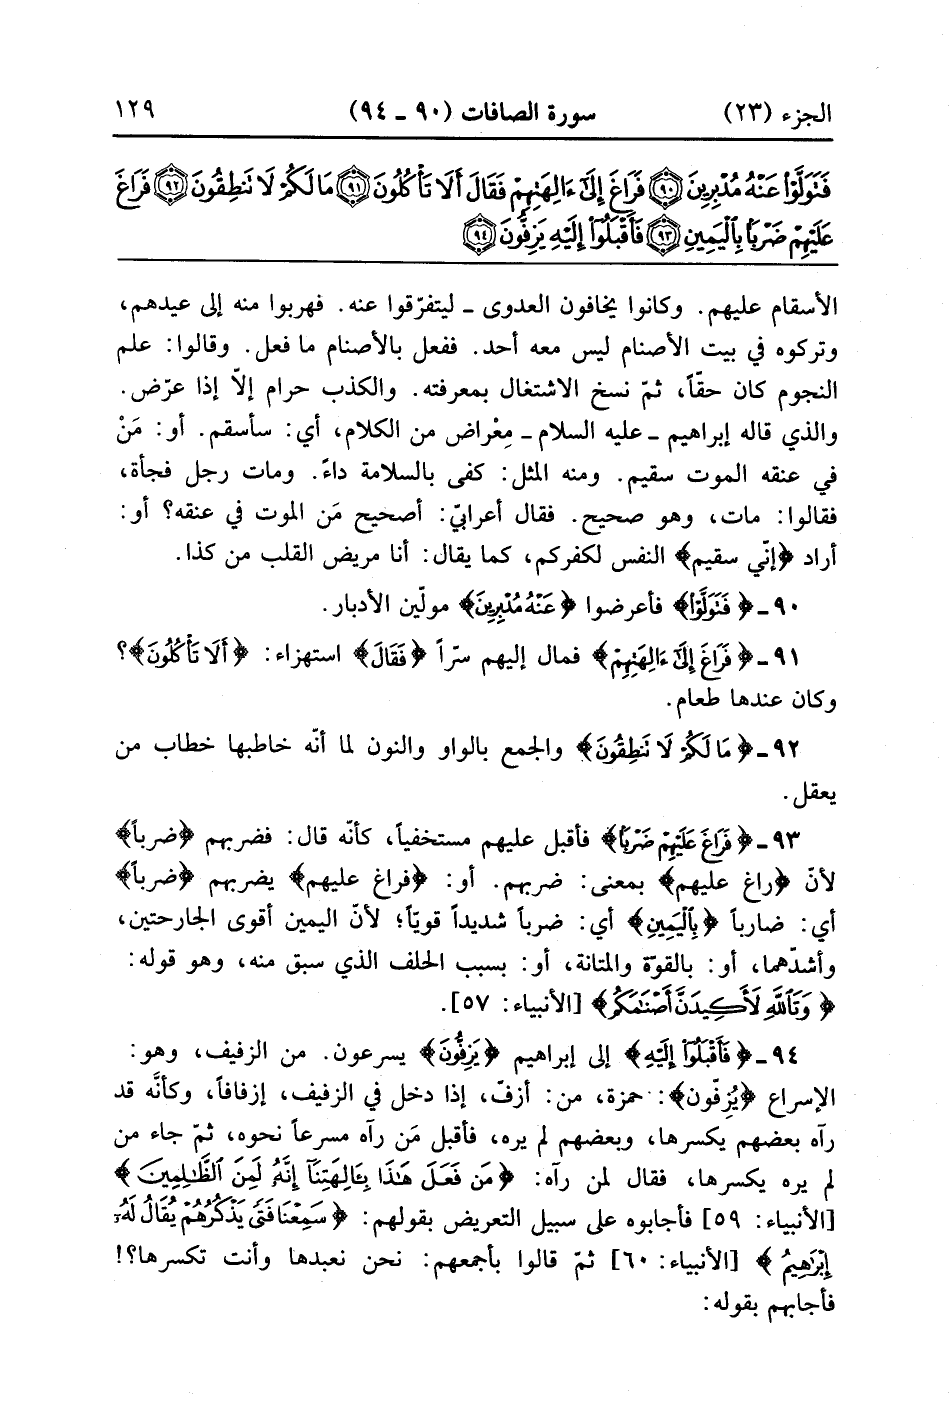 الجزء (٢٣) سورة الصافات (٩٠ ـ ٩٤) ١٢٩
فَتَوَلَّوْا۟ عَنْهُ مُدْبِرِينَ ۝٩٠ فَرَاغَ إِلَىٰٓ ءَالِهَتِهِمْ فَقَالَ أَلَا تَأْكُلُونَ ۝٩١ مَا لَكُمْ لَا تَنطِقُونَ ۝٩٢ فَرَاغَ
عَلَيْهِمْ ضَرْبًۢا بِٱلْيَمِينِ ۝٩٣ فَأَقْبَلُوٓا۟ إِلَيْهِ يَزِفُّونَ ۝٩٤
الأسقام عليهم. وكانوا يخافون العدوى ـ ليتفرّقوا عنه. فهربوا منه إلى عيدهم،
وتركوه في بيت الأصنام ليس معه أحد. ففعل بالأصنام ما فعل. وقالوا: علم
النجوم كان حقّاً، ثمّ نسخ الاشتغال بمعرفته. والكذب حرام إلاّ إذا عرّض.
والذي قاله إبراهيم ـ عليه السلام ـ مِعْراض من الكلام، أي: سأسقم. أو: مَنْ
في عنقه الموت سقيم. ومنه المثل: كفى بالسلامة داءً. ومات رجل فجأة،
فقالوا: مات، وهو صحيح. فقال أعرابيّ: أصحيح مَن الموت في عنقه؟ أو:
أراد ﴿إنّي سقيم﴾ النفس لكفركم، كما يقال: أنا مريض القلب من كذا.
٩٠ ـ ﴿فَتَوَلَّوْا۟﴾ فأعرضوا ﴿عَنْهُ مُدْبِرِينَ﴾ مولّين الأدبار.
٩١ ـ ﴿فَرَاغَ إِلَىٰٓ ءَالِهَتِهِمْ﴾ فمال إليهم سرّاً ﴿فَقَالَ﴾ استهزاء: ﴿أَلَا تَأْكُلُونَ﴾؟
وكان عندها طعام.
٩٢ ـ ﴿مَا لَكُمْ لَا تَنطِقُونَ﴾ والجمع بالواو والنون لما أنّه خاطبها خطاب من
يعقل.
٩٣ ـ ﴿فَرَاغَ عَلَيْهِمْ ضَرْبًۢا﴾ فأقبل عليهم مستخفياً، كأنّه قال: فضربهم ﴿ضرباً﴾
لأنّ ﴿راغ عليهم﴾ بمعنى: ضربهم. أو: ﴿فراغ عليهم﴾ يضربهم ﴿ضرباً﴾
أي: ضارباً ﴿بِٱلْيَمِينِ﴾ أي: ضرباً شديداً قويّاً؛ لأنّ اليمين أقوى الجارحتين،
وأشدّهما، أو: بالقوّة والمتانة، أو: بسبب الحلف الذي سبق منه، وهو قوله:
﴿وَتَٱللَّهِ لَأَكِيدَنَّ أَصْنَٰمَكُم﴾ [الأنبياء: ٥٧].
٩٤ ـ ﴿فَأَقْبَلُوٓا۟ إِلَيْهِ﴾ إلى إبراهيم ﴿يَزِفُّونَ﴾ يسرعون. من الزفيف، وهو:
الإسراع ﴿يُزِفّون﴾: حمزة، من: أزفّ، إذا دخل في الزفيف، إزفافاً، وكأنَّه قد
رآه بعضهم يكسرها، وبعضهم لم يره، فأقبل مَن رآه مسرعاً نحوه، ثمّ جاء من
لم يره يكسرها، فقال لمن رآه: ﴿مَن فَعَلَ هَٰذَا بِـَٔالِهَتِنَآ إِنَّهُۥ لَمِنَ ٱلظَّٰلِمِينَ﴾
[الأنبياء: ٥٩] فأجابوه على سبيل التعريض بقولهم: ﴿سَمِعْنَا فَتًى يَذْكُرُهُمْ يُقَالُ لَهُۥٓ
إِبْرَٰهِيمُ﴾ [الأنبياء: ٦٠] ثمّ قالوا بأجمعهم: نحن نعبدها وأنت تكسرها؟!
فأجابهم بقوله: